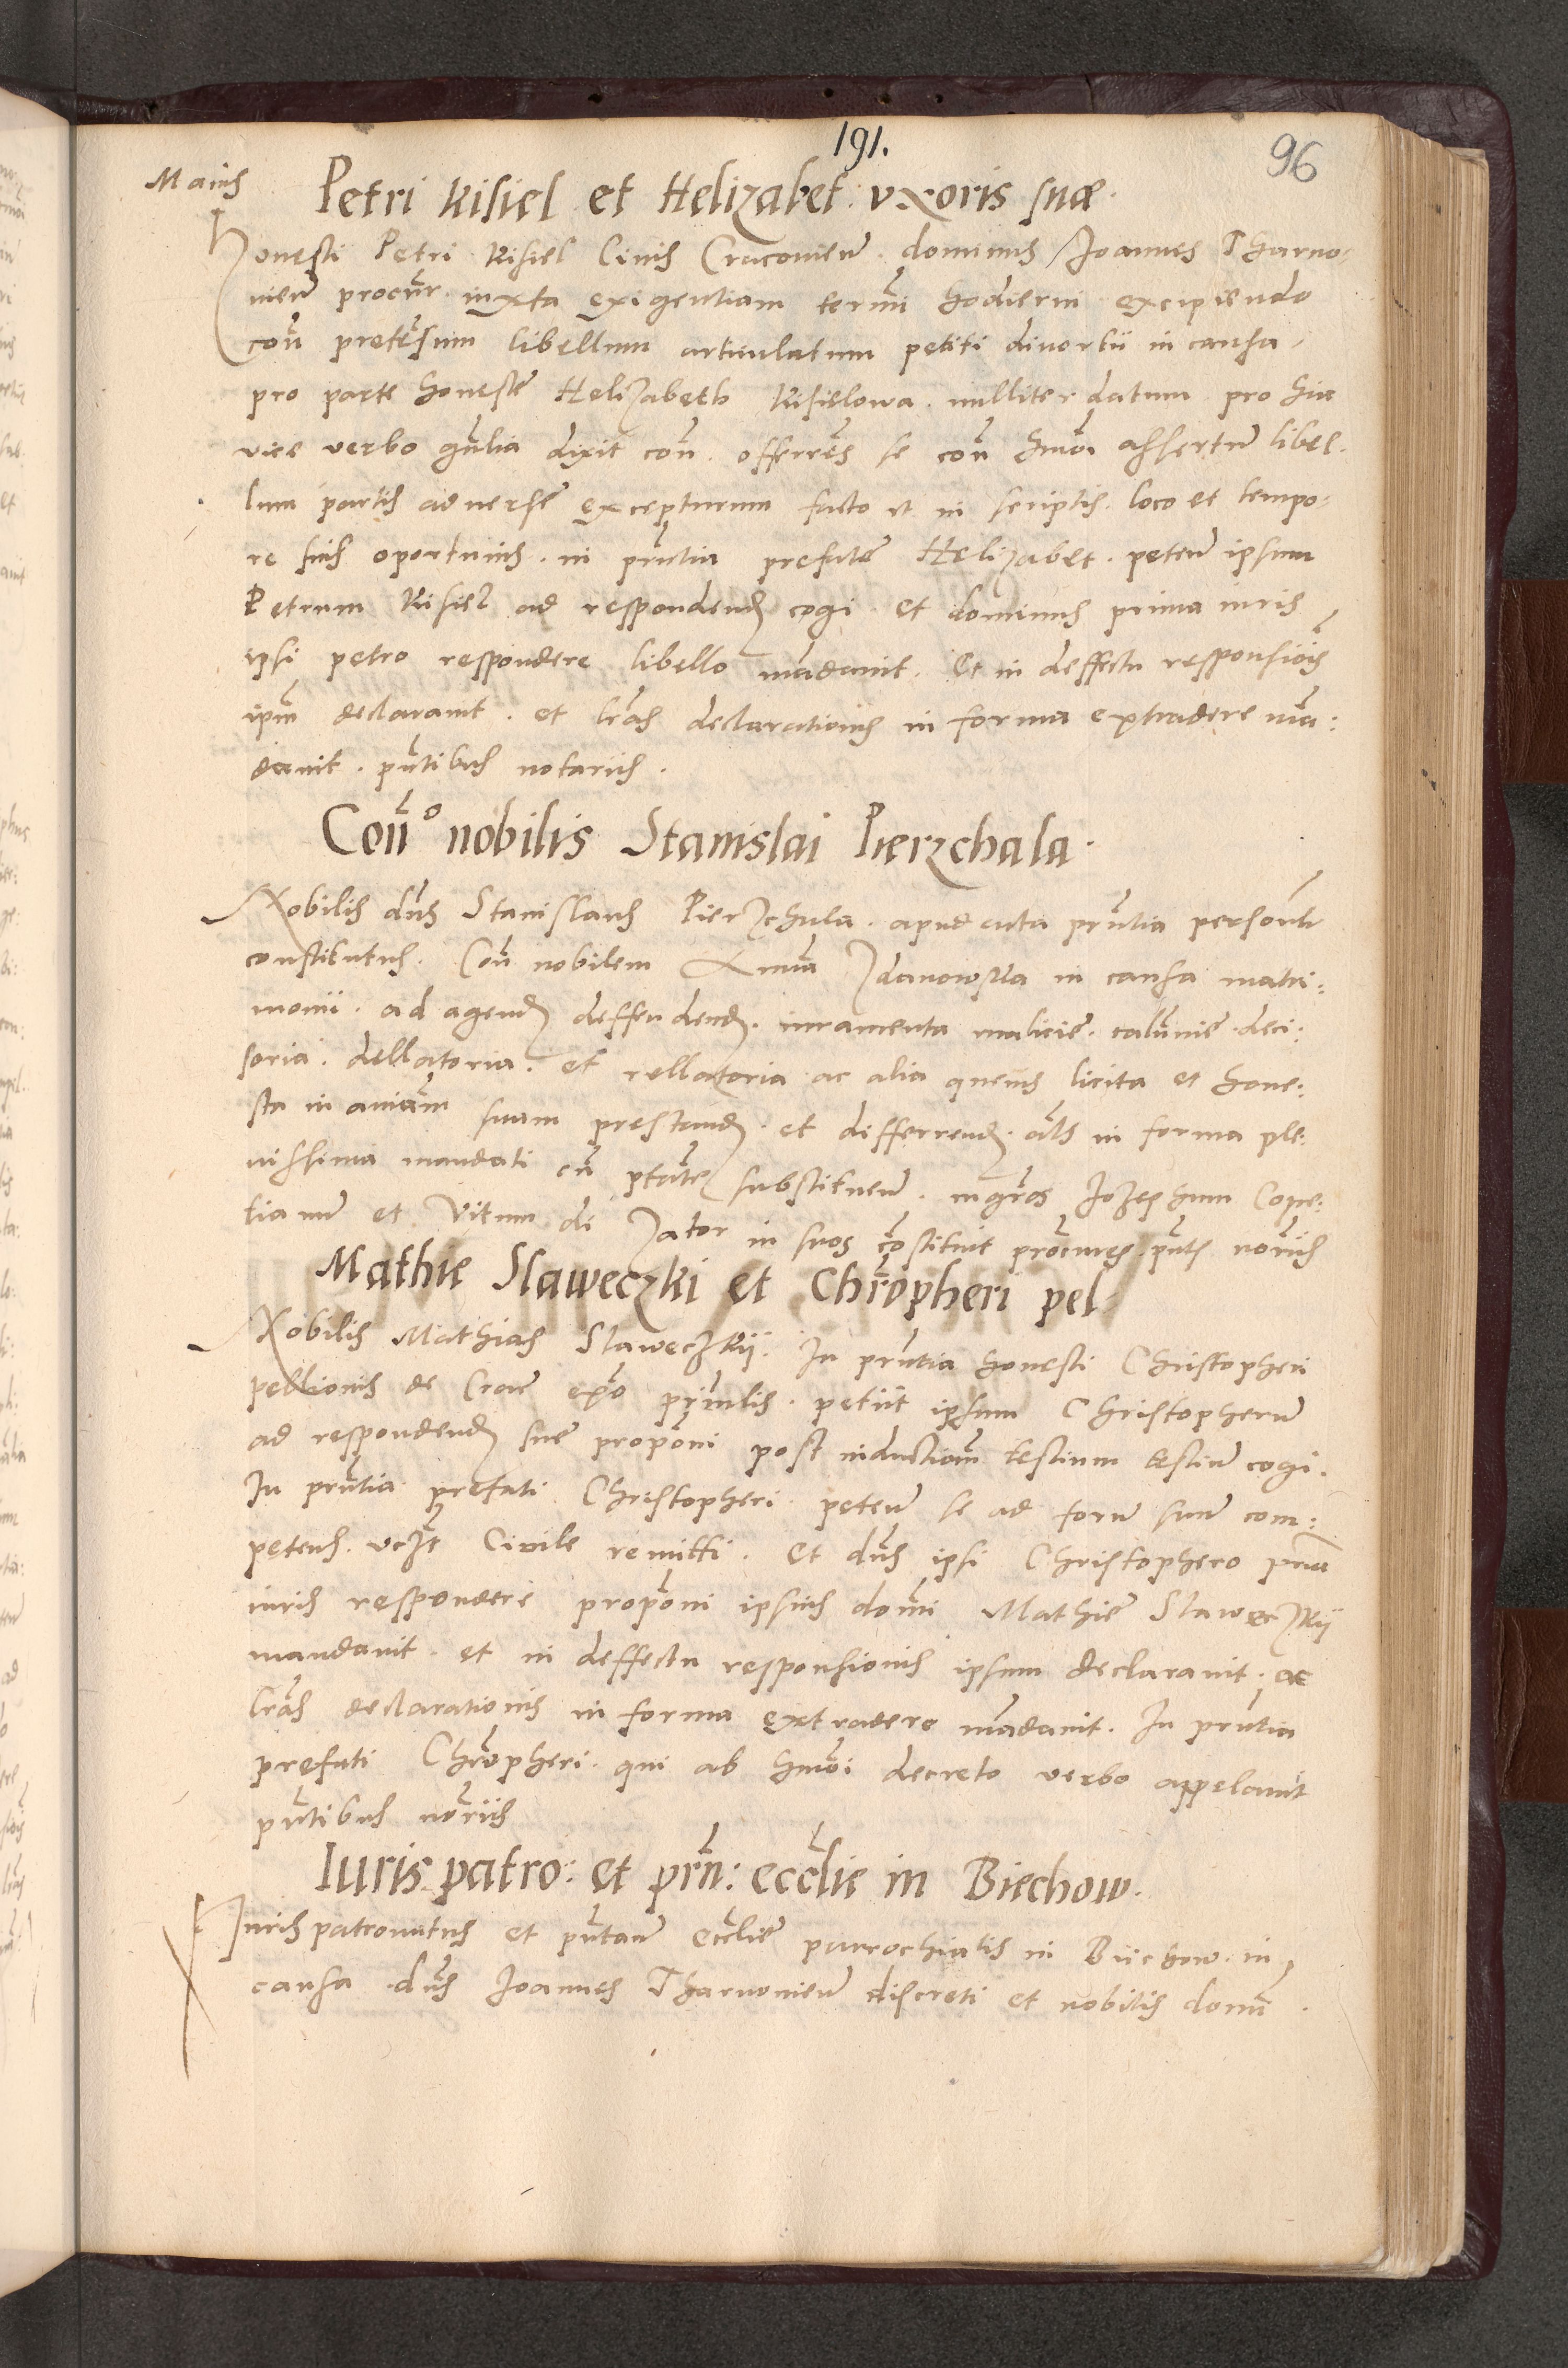 191.
96
Maius
Petri Kisiel et Helizabet: uxoris suæ.
Honesti Petri Kisiel Civis Cracovien̄ dominus Joannes Tharno-
vien̄ procur̄ iuxta exigentiam termi̅ hodierni excipiendo
con̄ pretensum libellum articulatum petiti divortii in causa
pro parte honeste Helizabeth Kisielowa nulliter datum pro hac
vice verbo gn̄lia dixit con̄. offerens se con̄ hmōi assertum libel-
lum partis adverse excepturum facto et in scriptis. loco et tempo-
re suis oportunis. in pn̄tia prefate Helizabet. peten̄ ipsum
Petrum Kisiel ad respondend cogi. Et dominus prima iuris
ipsi petro respondere libello mandavit. Et in deffectu responsiōis
ipm̄ declaravit. et lrās declarationis in forma extradere man:
davit. pn̄tibus notariis.
Con̄o nobilis Stanislai Pierzchala.
Nobilis dn̄s Stanislaus Pierzchala. apud acta pn̄tia personlr̄
constitutus. Con̄ nobilem Annā Zdanowska in causa matri:
monii. ad agend deffendend. iuramenta malicie. calūnie. deci:
soria. dellatoria. et rellatoria ac alia quevis licita et hone:
sta in aniām suam prestand. et differrend. als̄ in forma ple:
nissima mandati cū ptāte substituen̄. mgrōs Jozephum Cope:
tianū et Vitum di Zator in suos cōstituit procures. pn̄t norīis
Mathie Slaweczki et Chrōpheri pel
Nobilis Mathias Slaweczkij. In pn̄tia honesti Christopheri
pellionis de Crac̄ petiit ipsum Christopherū
ad respondend sue propōni post inductiōm testium testiū cogi.
In pn̄tia prefati Christopheri. peten̄ se ad forū suum com:
petens. vczt Civile remitti. Et dn̄s ipsi Christophero prīa
iuris respondere propōni ipsius domī Mathie Slaweczkij
mandavit. et in deffectu responsionis ipsum declaravit. ac
lrās declarationis in forma extradere mādavit. In pn̄tia
prefati Chrōpheri. qui ab hmōi decreto verbo appelavit
pn̄tibus norīis
Iuris patro: et prn̄: eccl̄ie in Biechow.
Jurispatronatus et pn̄tan̄ eccl̄ie parrochialis in Biechow. in
causa dn̄s Joannes Tharnovien̄ discreti et nobilis domī.